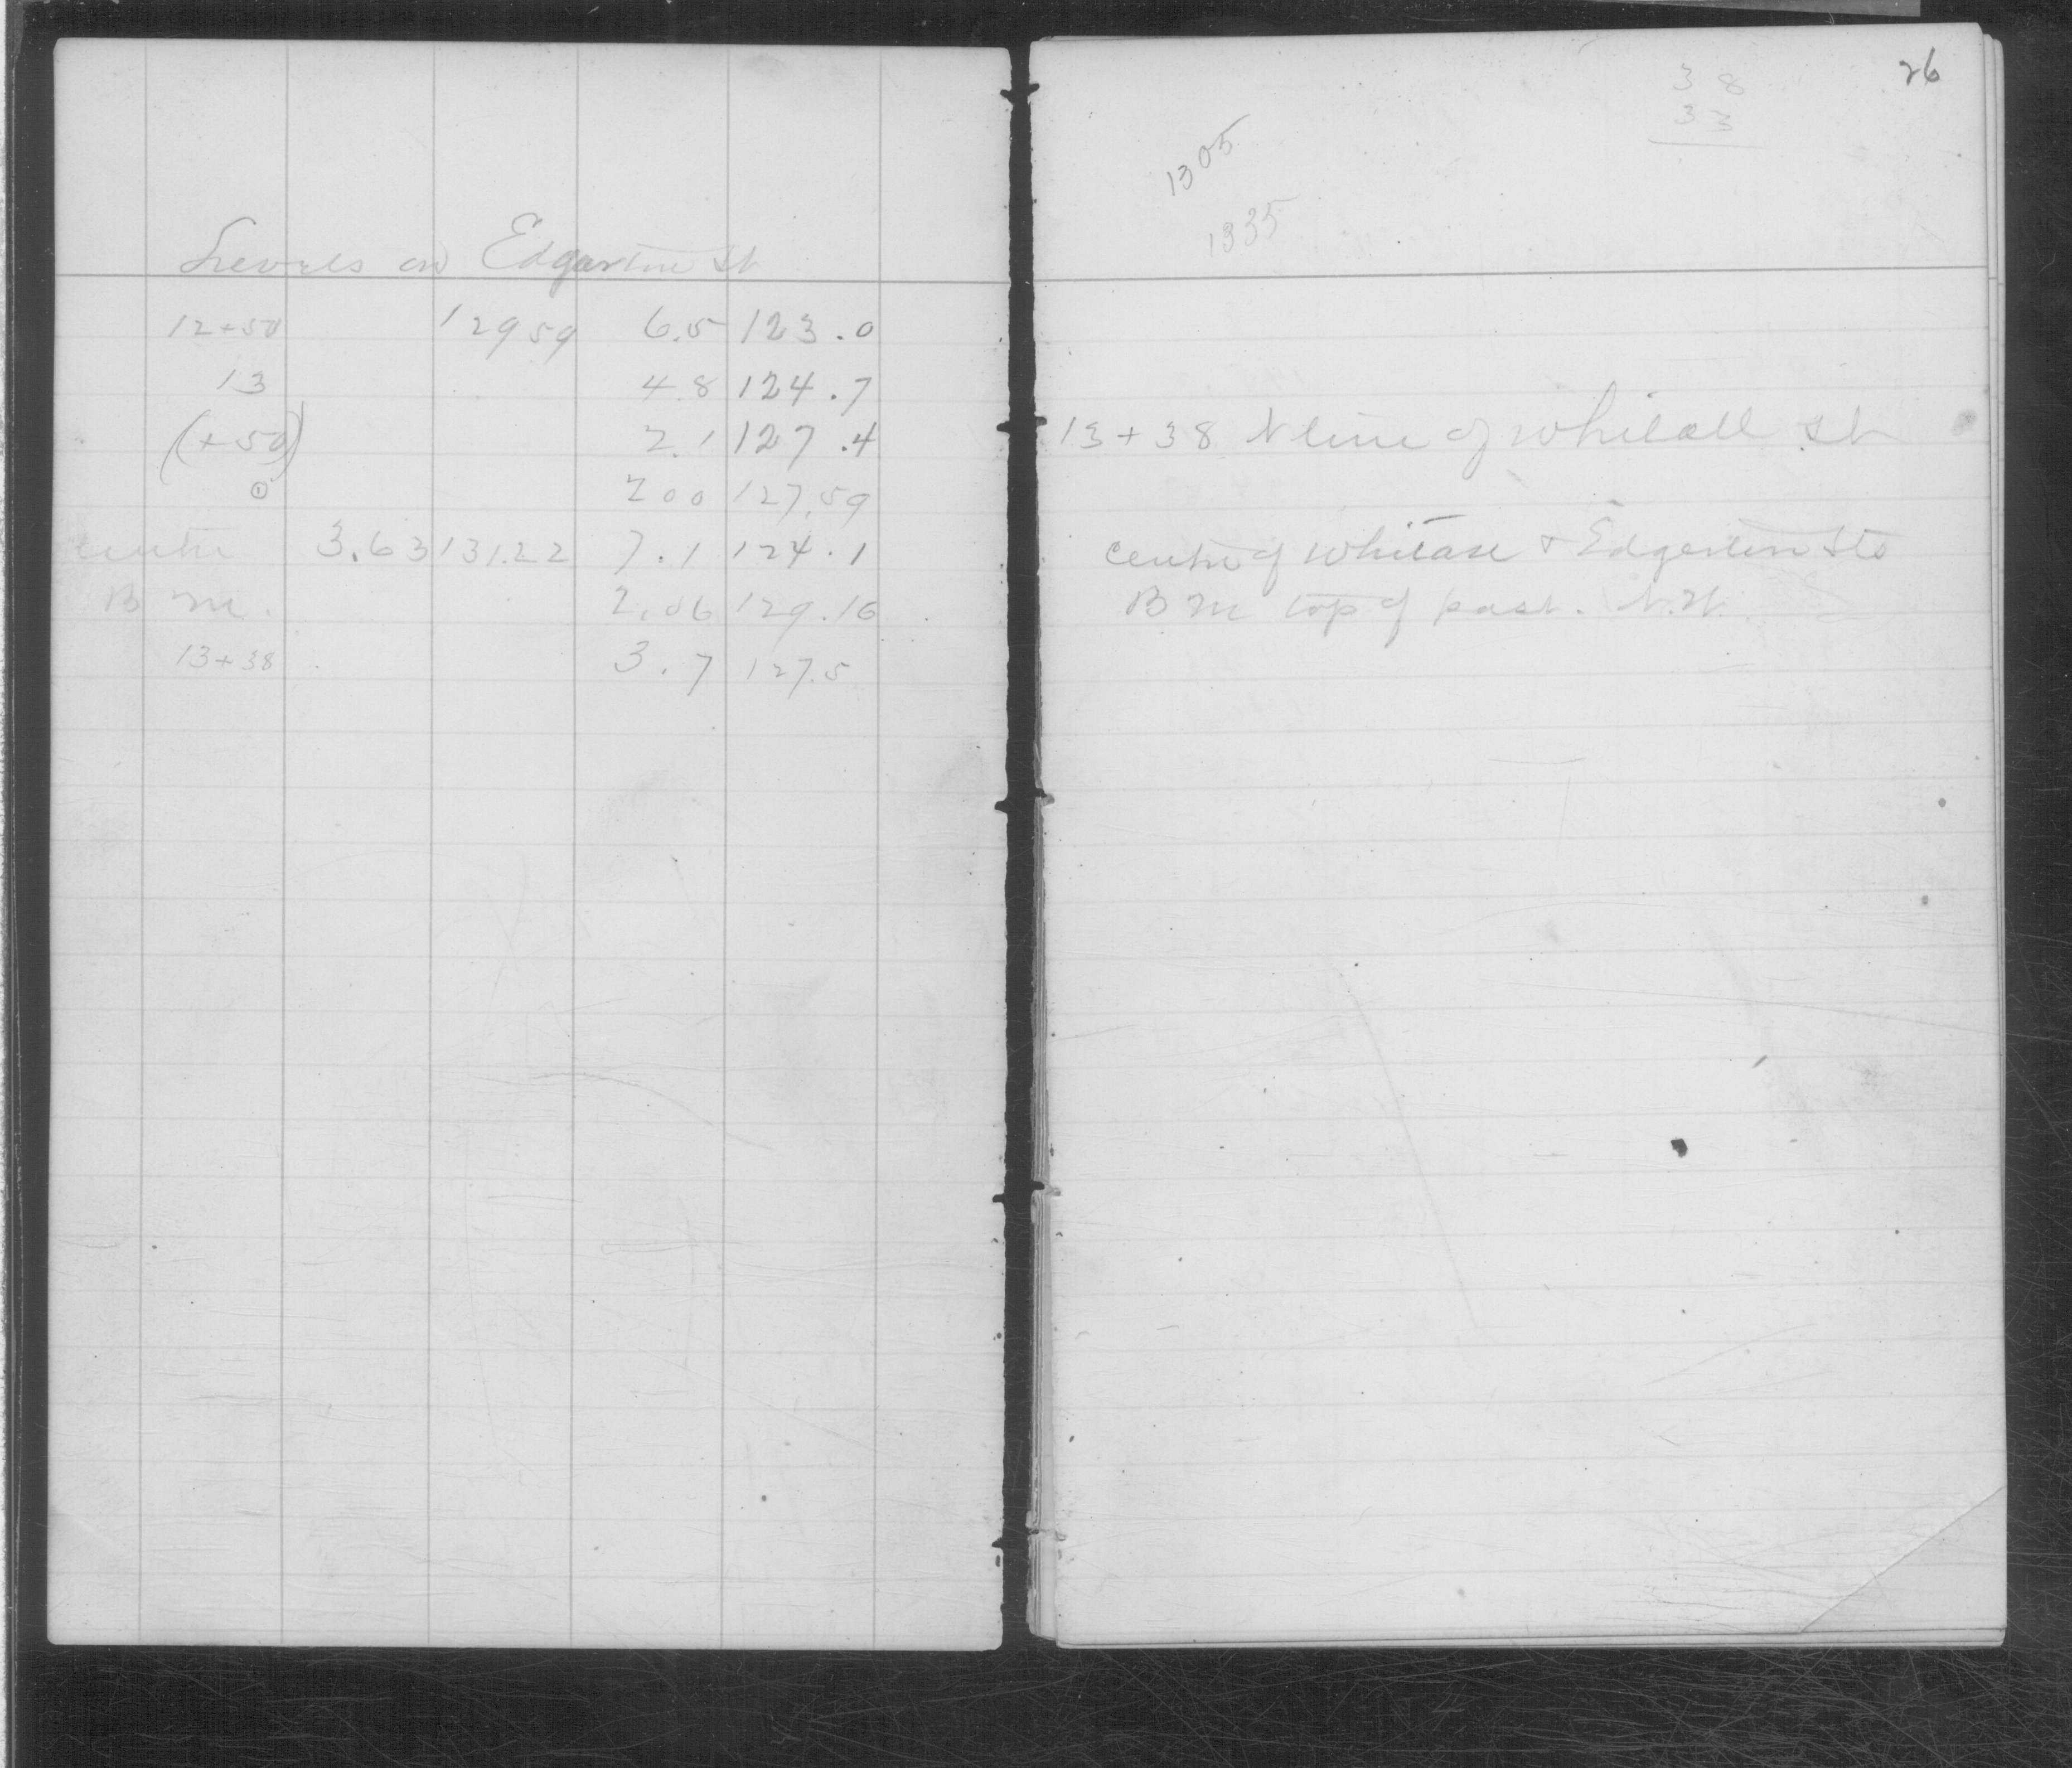 Levels on Edgerton St
12+50 129 59 6.5 123.0
13 4.8 124.7
(+50) 2.1 127.4
① 2 00 127.59
centre 3.63 131.22 7.1 124.1
B M. 2.06 129.16
13+38 3.7 127.5
26
38
33
1305
1335
13+38 N line of Whitall St
centre of Whitall & Edgerton Sts
B M top of post. N.W.